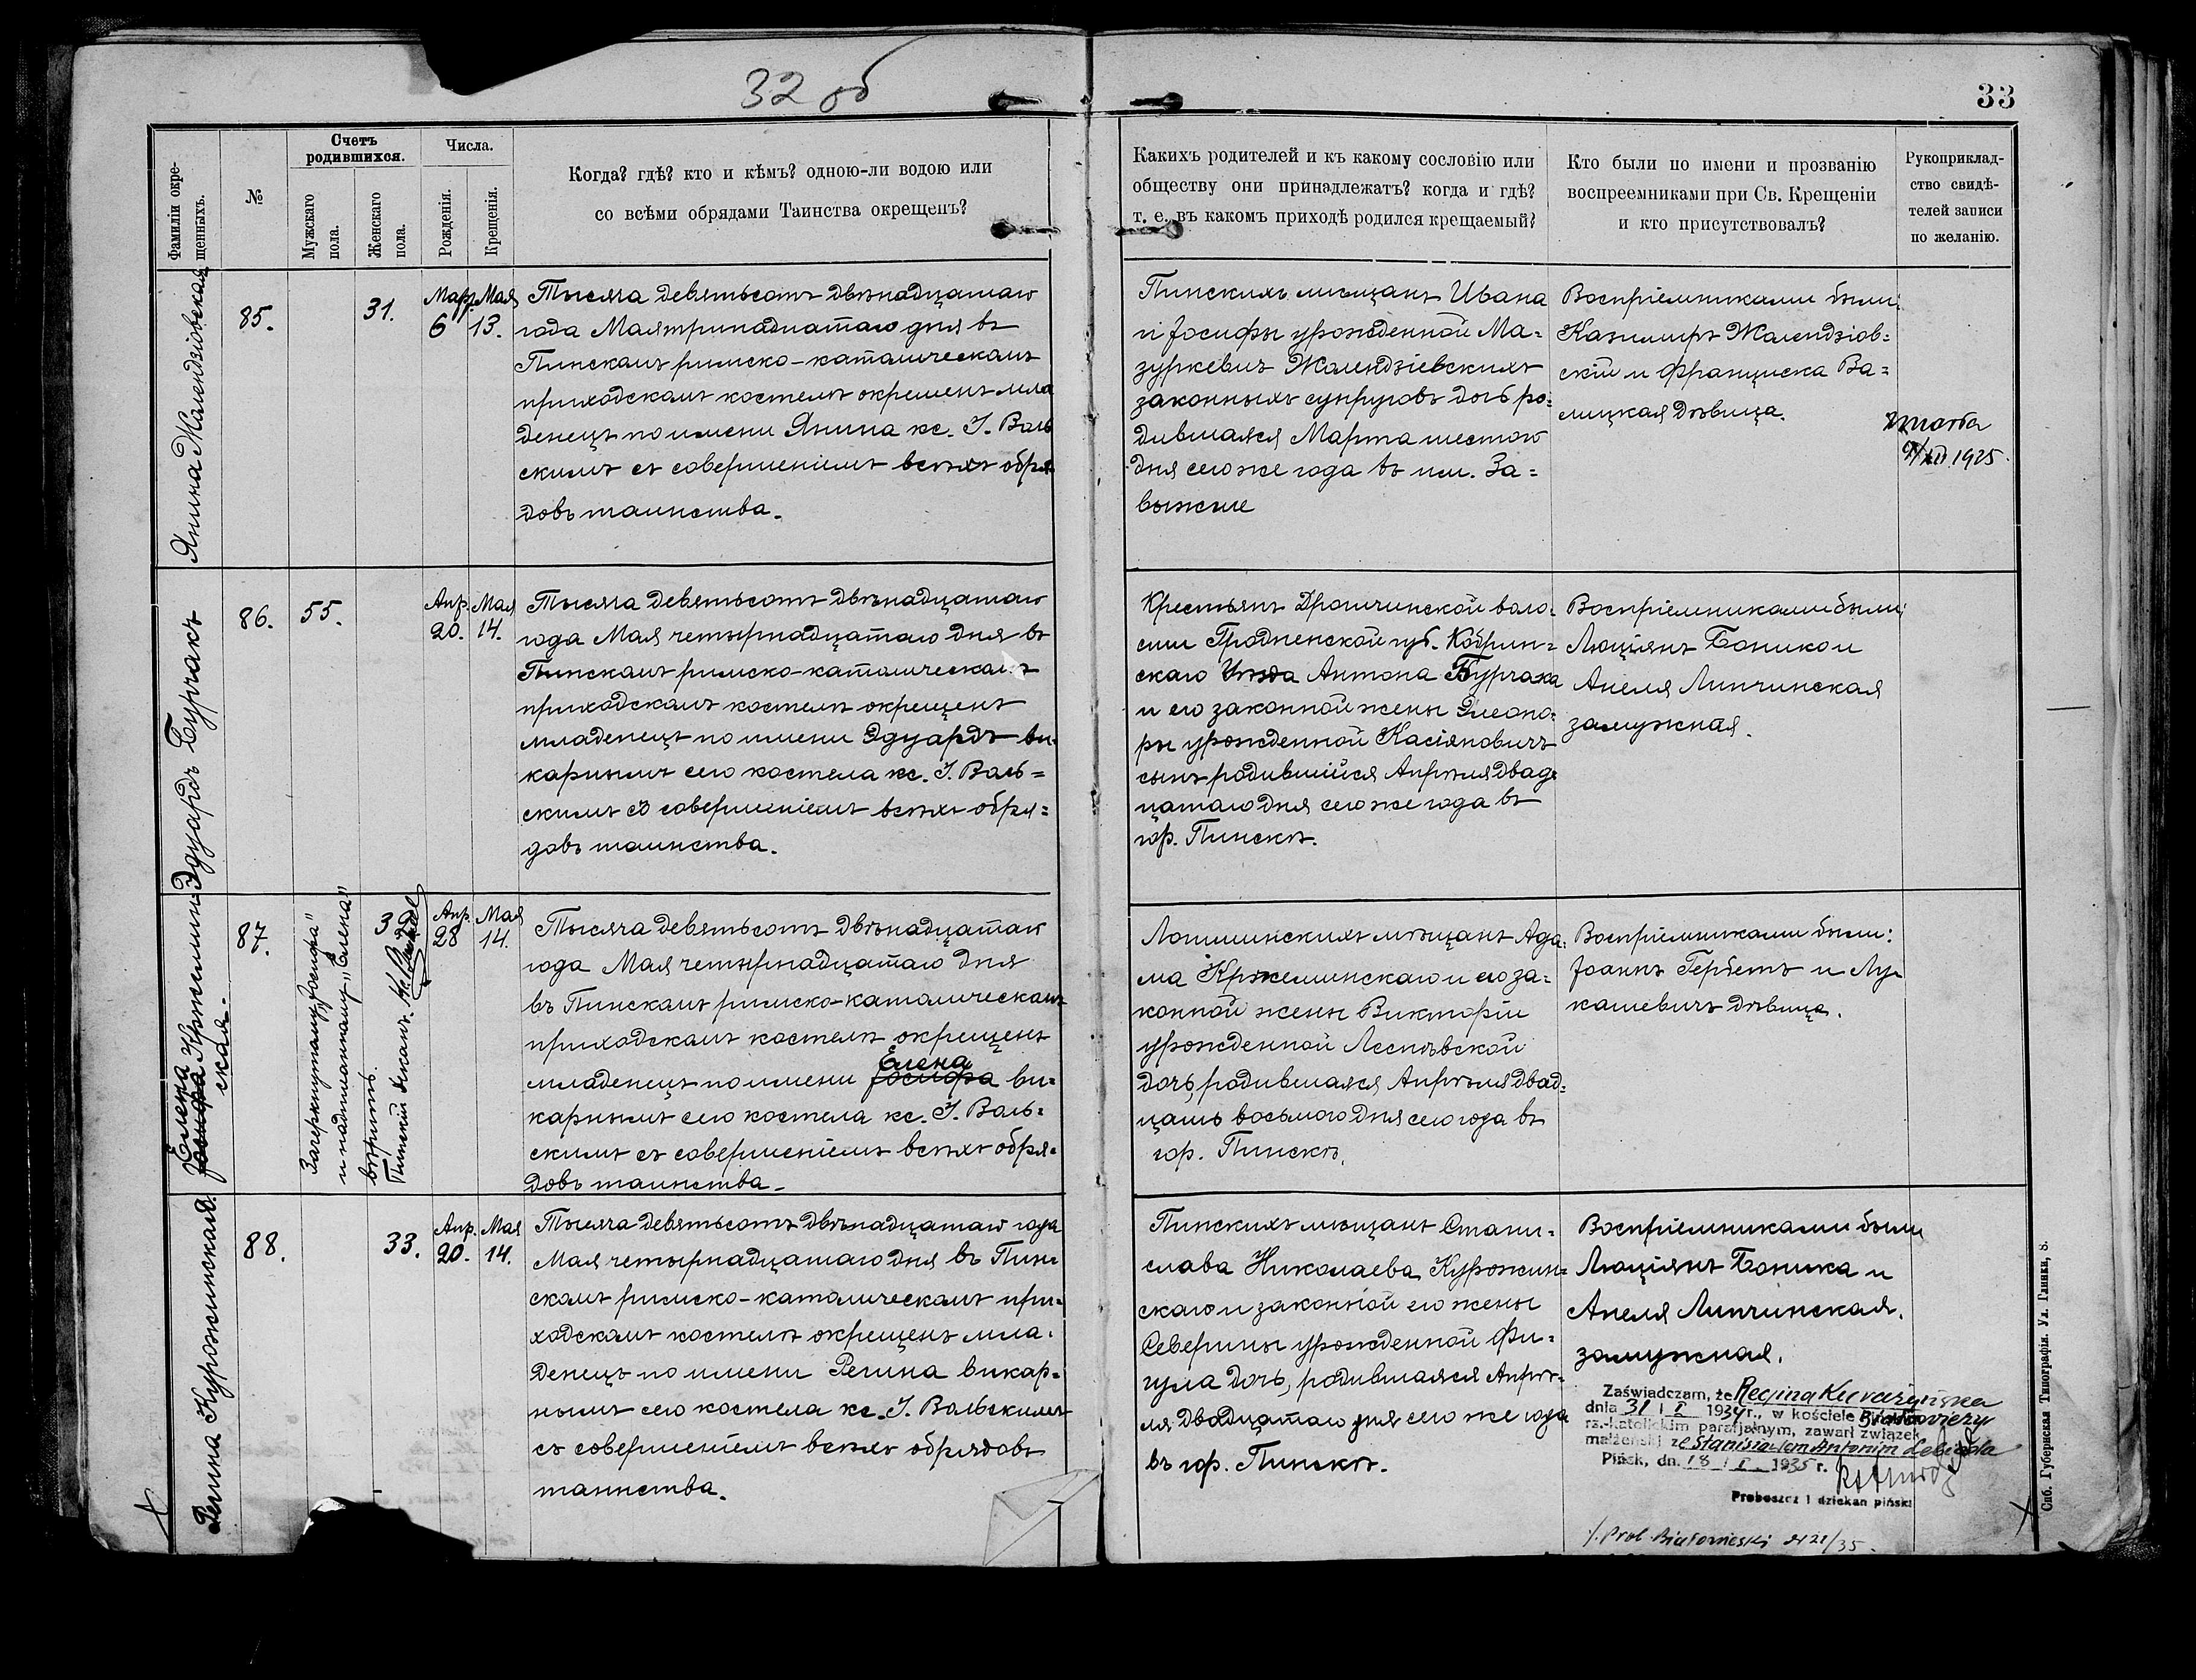 32 об
33
Фамиліи окре-
щенныхъ.
№
Счетъ
родившихся.
Мужскаго
пола.
Женскаго
пола.
Числа.
Рожденія.
Крещенія.
Когда? гдѣ? кто и кѣмъ? одною-ли водою или
со всѣми обрядами Таинства окрещенъ?
Какихъ родителей и къ какому сословію или
обществу они принадлежатъ? когда и гдѣ?
т. е. въ какомъ приходѣ родился крещаемый?
Кто были по имени и прозванію
воспреемниками при Св. Крещеніи
и кто присутствовалъ?
Рукоприклад-
ство свидѣ-
телей записи
по желанію.
Янина Жолендзіовская
85.
31.
Мар. 6
Мая 13.
Тысяча девятьсотъ двѣнадцатаго
года Мая тринадцатаго дня въ
Пинскомъ римско-католическомъ
приходскомъ костелѣ окрещенъ мла
денецъ по имени Янина кс. І. Валь
скимъ съ совершеніемъ всѣхъ обря
довъ таинства.
Пинскихъ мѣщанъ Ивана
и Іосифы урожденной Ма=
зуркевичъ Жолендзіевскихъ
законныхъ супруговъ дочь ро=
дившаяся Марта шестого
дня сего же года въ им. За=
выжше
Воспріемниками были
Казимиръ Жолендзіов=
скій и Франциска Ва=
лицкая дѣвица.
zmarła
XII 1925.
Эдуардъ Бурчакъ
86.
55.
Апр. 20.
Мая 14.
Тысяча девятьсотъ двѣнадцатаго
года Мая четырнадцатаго дня въ
Пинскомъ римско-католическомъ
приходскомъ костелѣ окрещенъ
младенецъ по имени Эдуардъ ви=
карнымъ сего костела кс. І. Валь=
скимъ съ совершеніемъ всѣхъ обря=
довъ таинства.
Крестьянъ Дрогичинской воло=
сти Гродненской губ. Кобрин=
скаго Уѣзда Антона Бурчака
и его законной жены Элеоно=
ры урожденной Касіяновичъ
сынъ родившійся Апрѣля двад
цатаго дня сего же года въ
гор. Пинскѣ.
Воспріемниками были:
Люціянъ Боника и
Анеля Липчинская
замужная.
Елена
Іосифа Кржемин
ская.
87.
32.
Зачеркнутому "Іосифа"
и надписанному "Елена"
вѣрить.
Пинскій Деканъ.
Апр. 28
Мая 14.
Тысяча девятьсотъ двѣнадцатаго
года Мая четырнадцатаго дня
въ Пинскомъ римско-католическомъ
приходскомъ костелѣ окрещенъ
Елена
младенецъ по имени Іосифа ви=
карнымъ сего костела кс. І. Валь=
скимъ съ совершеніемъ всѣхъ обря=
довъ таинства.
Логишинскихъ мѣщанъ Ада=
ма Кржеминскаго и его за=
конной жены Викторіи
урожденной Леснѣвской
дочь, родившаяся Апрѣля двад=
цать восьмого дня сего года въ
гор. Пинскѣ.
Воспріемниками были:
Іоаннъ Гербетъ и Лу-
кашевичъ дѣвица.
Регина Курожинская.
88.
33.
Апр. 20.
Мая 14.
Тысяча девятьсотъ двѣнадцатаго года
Мая четырнадцатаго дня въ Пин
скомъ римско-католическомъ при=
ходскомъ костелѣ окрещенъ мла=
денецъ по имени Регина викар=
нымъ сего костела кс. І. Вальскимъ
съ совершеніемъ всѣхъ обрядовъ
таинства.
Пинскихъ мѣщанъ Стани=
слава Николаева Курожин=
скаго и законной его жены
Северины урожденной Фи=
гула дочь, родившаяся Апрѣ=
ля двадцатаго дня сего же года
въ гор. Пинскѣ.
Воспріемниками были
Люціянъ Боника и
Анеля Липчинская.
замужная.
Zaświadczam, że Regina Kurożyńska
dnia 31 I 1934 r., w kościele Białowieży
rz.-katolickim parafjalnym, zawarł związek
małżeński ze Stanisławem Antonim Lebieda
Pińsk, dn. 18 I 1935 r.
Proboszcz i dziekan piński
Спб. Губернская Типографія. Ул. Глинки, 8.